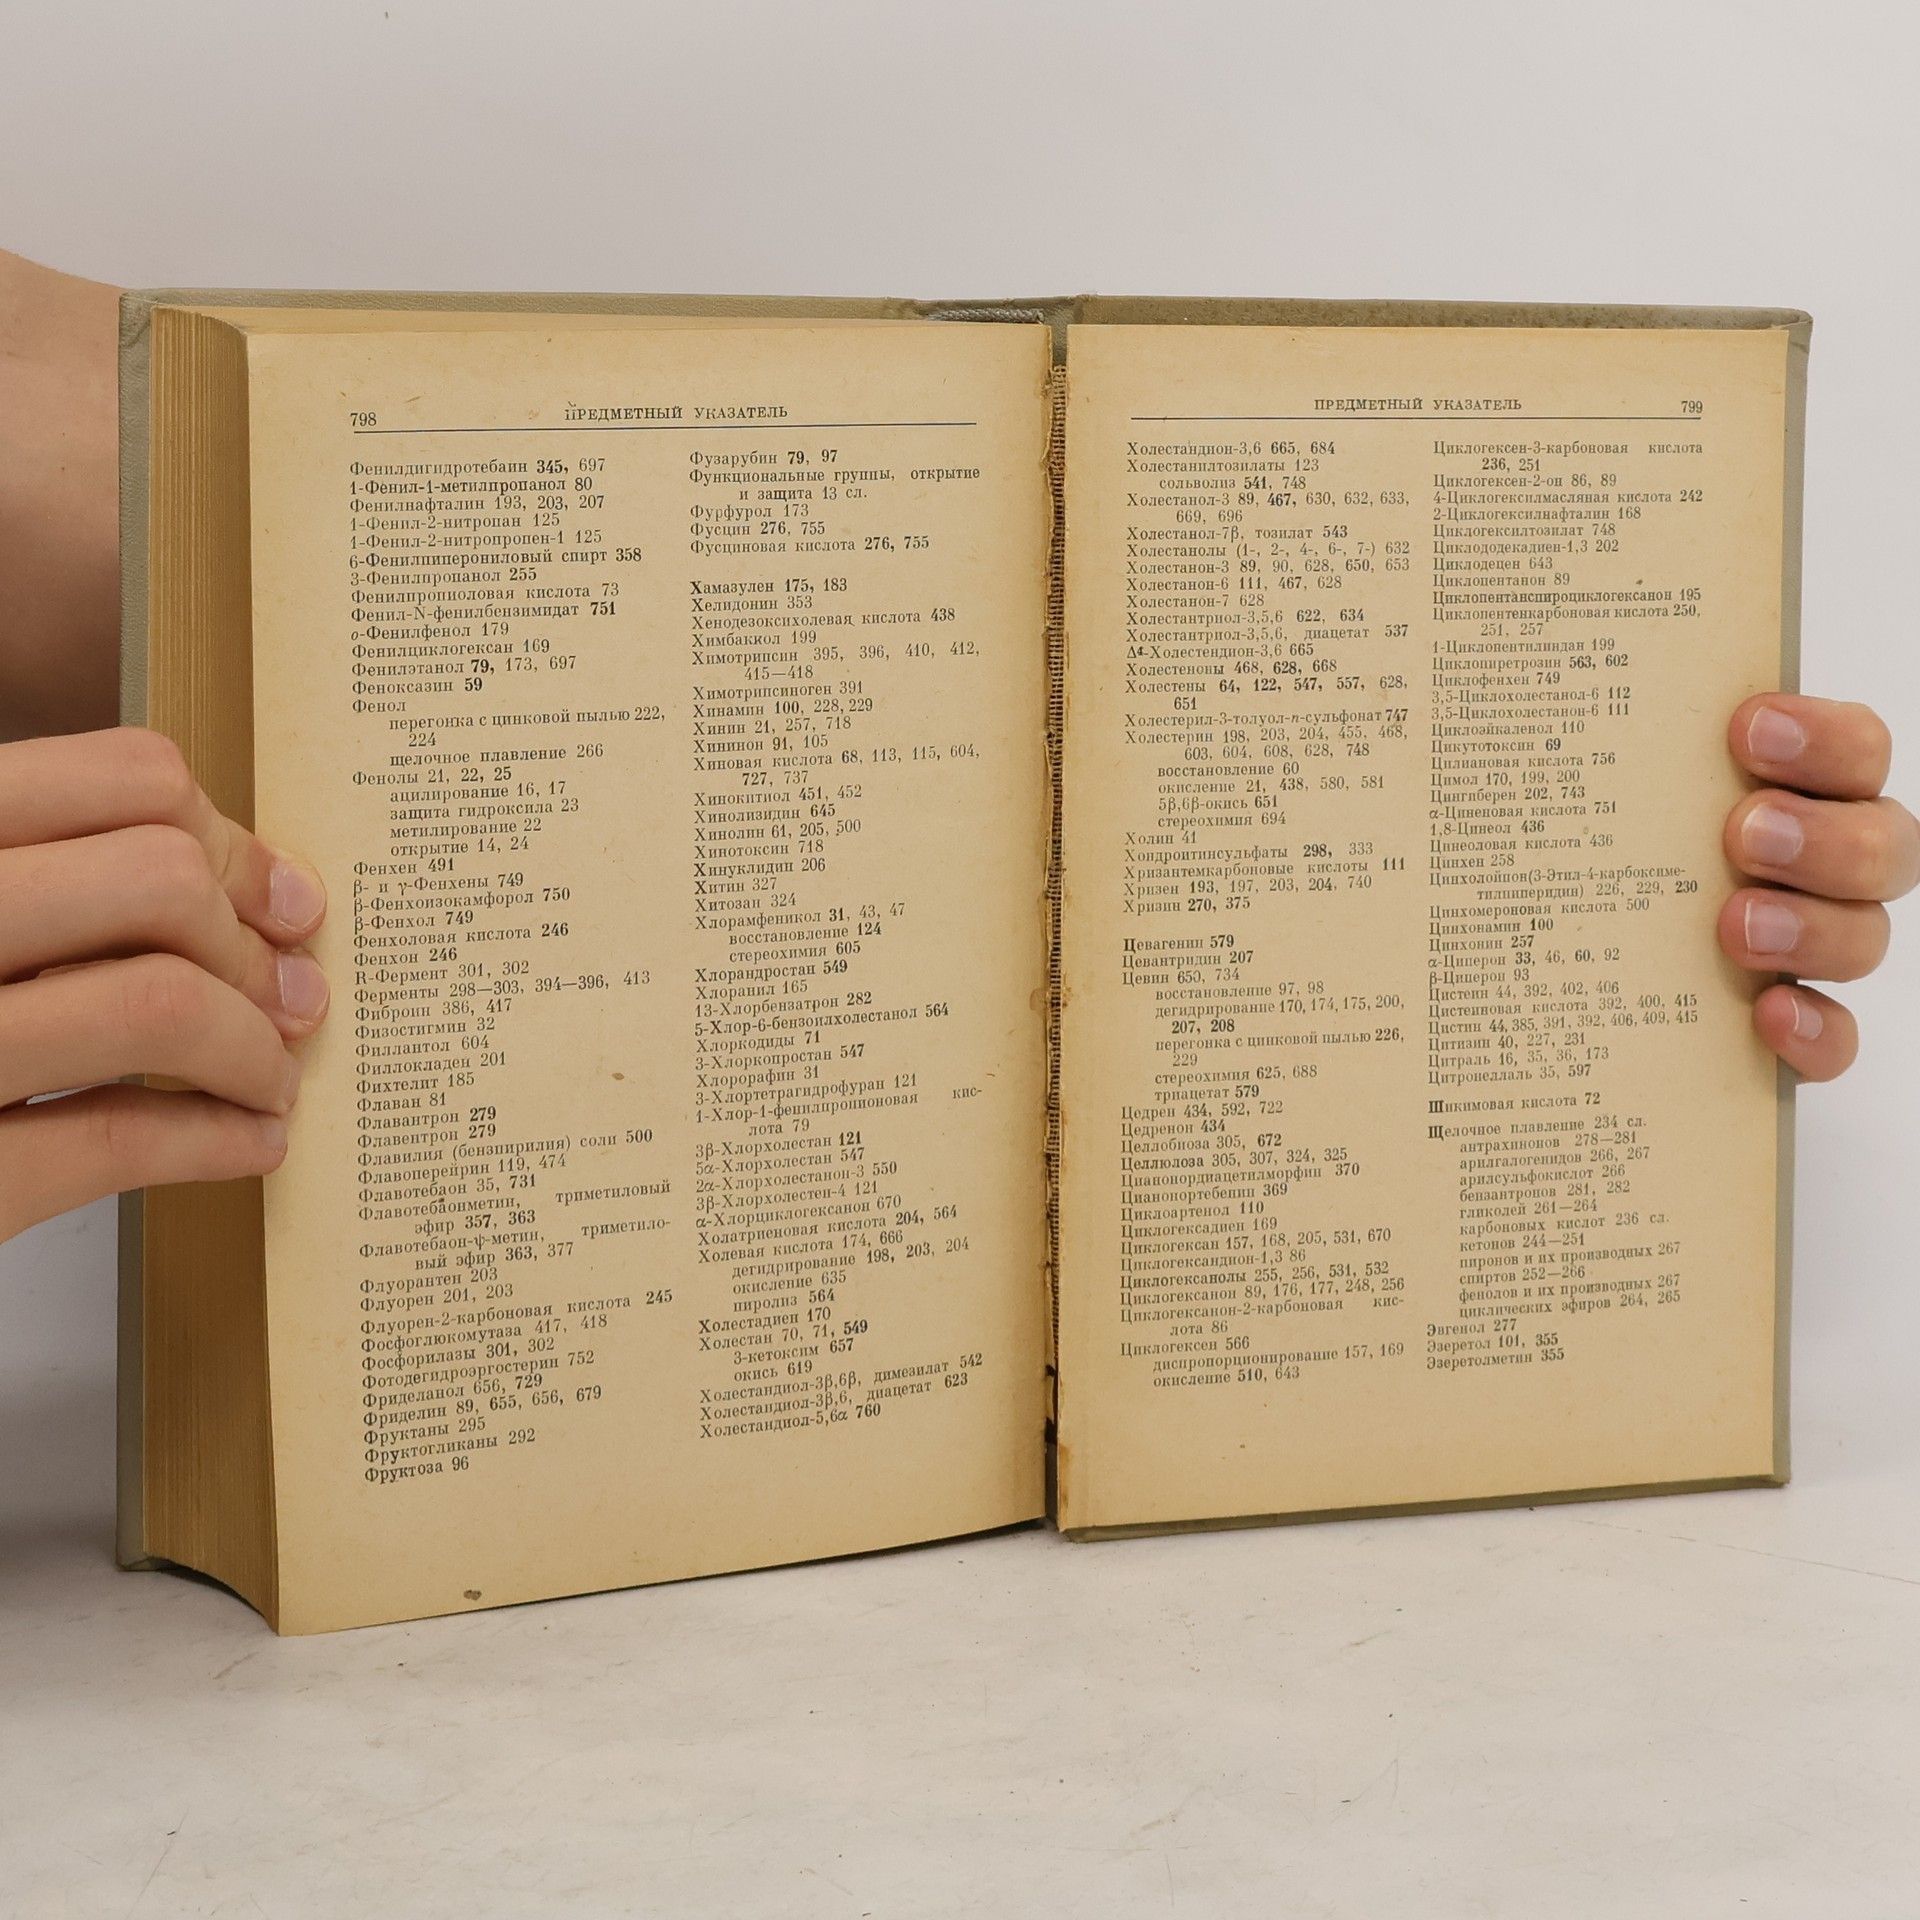 798 ПРЕДМЕТНЫЙ УКАЗАТЕЛЬ
Фенилдигидротебаин 345, 697
1-Фенил-1-метилпропанол 80
Фенилнафталин 193, 203, 207
1-Фенил-2-нитропан 125
1-Фенил-2-нитропропен-1 125
6-Фенилпиперониловый спирт 358
3-Фенилпропанол 255
Фенилпропиоловая кислота 73
Фенил-N-фенилбензимидат 751
о-Фенилфенол 179
Фенилциклогексан 169
Фенилэтанол 79, 173, 697
Феноксазин 59
Фенол
перегонка с цинковой пылью 222,
224
щелочное плавление 266
Фенолы 21, 22, 25
ацилирование 16, 17
защита гидроксила 23
метилирование 22
открытие 14, 24
Фенхен 491
β- и γ-Фенхены 749
β-Фенхоизокамфорол 750
β-Фенхол 749
Фенхоловая кислота 246
Фенхон 246
R-Фермент 301, 302
Ферменты 298—303, 394—396, 413
Фиброин 386, 417
Физостигмин 32
Филлантол 604
Филлокладен 201
Фихтелит 185
Флаван 81
Флавантрон 279
Флавентрон 279
Флавилия (бензпирилия) соли 500
Флавоперейрин 119, 474
Флавотебаон 35, 731
Флавотебаонметин, триметиловый
эфир 357, 363
Флавотебаон-ψ-метин, триметило-
вый эфир 363, 377
Флуорантен 203
Флуорен 201, 203
Флуорен-2-карбоновая кислота 245
Фосфоглюкомутаза 417, 418
Фосфорилазы 301, 302
Фотодегидроэргостерин 752
Фриделанол 656, 729
Фриделин 89, 655, 656, 679
Фруктаны 295
Фруктогликаны 292
Фруктоза 96
Фузарубин 79, 97
Функциональные группы, открытие
и защита 13 сл.
Фурфурол 173
Фусцин 276, 755
Фусциновая кислота 276, 755
Хамазулен 175, 183
Хелидонин 353
Хенодезоксихолевая кислота 438
Химбакиол 199
Химотрипсин 395, 396, 410, 412,
415—418
Химотрипсиноген 391
Хинамин 100, 228, 229
Хинин 21, 257, 718
Хининон 91, 105
Хиновая кислота 68, 113, 115, 604,
727, 737
Хинокитиол 451, 452
Хинолизидин 645
Хинолин 61, 205, 500
Хинотоксин 718
Хинуклидин 206
Хитин 327
Хитозан 324
Хлорамфеникол 31, 43, 47
восстановление 124
стереохимия 605
Хлорандростан 549
Хлоранил 165
13-Хлорбензатрон 282
5-Хлор-6-бензоилхолестанол 564
Хлоркодиды 71
3-Хлоркопростан 547
Хлорорафин 31
3-Хлортетрагидрофуран 121
1-Хлор-1-фенилпропионовая кис-
лота 79
3β-Хлорхолестан 121
5α-Хлорхолестан 547
2α-Хлорхолестанон-3 550
3β-Хлорхолестен-4 121
α-Хлорциклогексанон 670
Холатриеновая кислота 204, 564
Холевая кислота 174, 666
дегидрирование 198, 203, 204
окисление 635
пиролиз 564
Холестадиен 170
Холестан 70, 71, 549
3-кетоксим 657
окись 619
Холестандиол-3β,6β, димезилат 542
Холестандиол-3β,6, диацетат 623
Холестандиол-5,6α 760
ПРЕДМЕТНЫЙ УКАЗАТЕЛЬ 799
Холестандион-3,6 665, 684
Холестанилтозилаты 123
сольволиз 541, 748
Холестанол-3 89, 467, 630, 632, 633,
669, 696
Холестанол-7β, тозилат 543
Холестанолы (1-, 2-, 4-, 6-, 7-) 632
Холестанон-3 89, 90, 628, 650, 653
Холестанон-6 111, 467, 628
Холестанон-7 628
Холестантриол-3,5,6 622, 634
Холестантриол-3,5,6, диацетат 537
Δ4-Холестендион-3,6 665
Холестеноны 468, 628, 668
Холестены 64, 122, 547, 557, 628,
651
Холестерил-3-толуол-п-сульфонат 747
Холестерин 198, 203, 204, 455, 468,
603, 604, 608, 628, 748
восстановление 60
окисление 21, 438, 580, 581
5β,6β-окись 651
стереохимия 694
Холин 41
Хондроитинсульфаты 298, 333
Хризантемкарбоновые кислоты 111
Хризен 193, 197, 203, 204, 740
Хризин 270, 375
Цевагенин 579
Цевантридин 207
Цевин 650, 734
восстановление 97, 98
дегидрирование 170, 174, 175, 200,
207, 208
перегонка с цинковой пылью 226,
229
стереохимия 625, 688
триацетат 579
Цедрен 434, 592, 722
Цедренон 434
Целлобиоза 305, 672
Целлюлоза 305, 307, 324, 325
Цианонордиацетилморфин 370
Цианонортебенин 369
Циклоартенол 110
Циклогексадиен 169
Циклогексан 157, 168, 205, 531, 670
Циклогександион-1,3 86
Циклогексанолы 255, 256, 531, 532
Циклогексанон 89, 176, 177, 248, 256
Циклогексанон-2-карбоновая кис-
лота 86
Циклогексен 566
диспропорционирование 157, 169
окисление 510, 643
Циклогексен-3-карбоновая кислота
236, 251
Циклогексен-2-он 86, 89
4-Циклогексилмасляная кислота 242
2-Циклогексилнафталин 168
Циклогексилтозилат 748
Циклододекадиен-1,3 202
Циклодецен 643
Циклопентанон 89
Циклопентанспироциклогексанон 195
Циклопентенкарбоновая кислота 250,
251, 257
1-Циклопентилиндан 199
Циклопиретрозин 563, 602
Циклофенхен 749
3,5-Циклохолестанол-6 112
3,5-Циклохолестанон-6 111
Циклоэйкаленол 110
Цикутотоксин 69
Цилиановая кислота 756
Цимол 170, 199, 200
Цингиберен 202, 743
α-Циненовая кислота 751
1,8-Цинеол 436
Цинеоловая кислота 436
Цинхен 258
Цинхолойпон(3-Этил-4-карбоксиме-
тилпиперидин) 226, 229, 230
Цинхомероновая кислота 500
Цинхонамин 100
Цинхонин 257
α-Циперон 33, 46, 60, 92
β-Циперон 93
Цистеин 44, 392, 402, 406
Цистеиновая кислота 392, 400, 415
Цистин 44, 385, 391, 392, 406, 409, 415
Цитизин 40, 227, 231
Цитраль 16, 35, 36, 173
Цитронеллаль 35, 597
Шикимовая кислота 72
Щелочное плавление 234 сл.
антрахинонов 278—281
арилгалогенидов 266, 267
арилсульфокислот 266
бензантронов 281, 282
гликолей 261—264
карбоновых кислот 236 сл.
кетонов 244—251
пиронов и их производных 267
спиртов 252—266
фенолов и их производных 267
циклических эфиров 264, 265
Эвгенол 277
Эзеретол 101, 355
Эзеретолметин 355